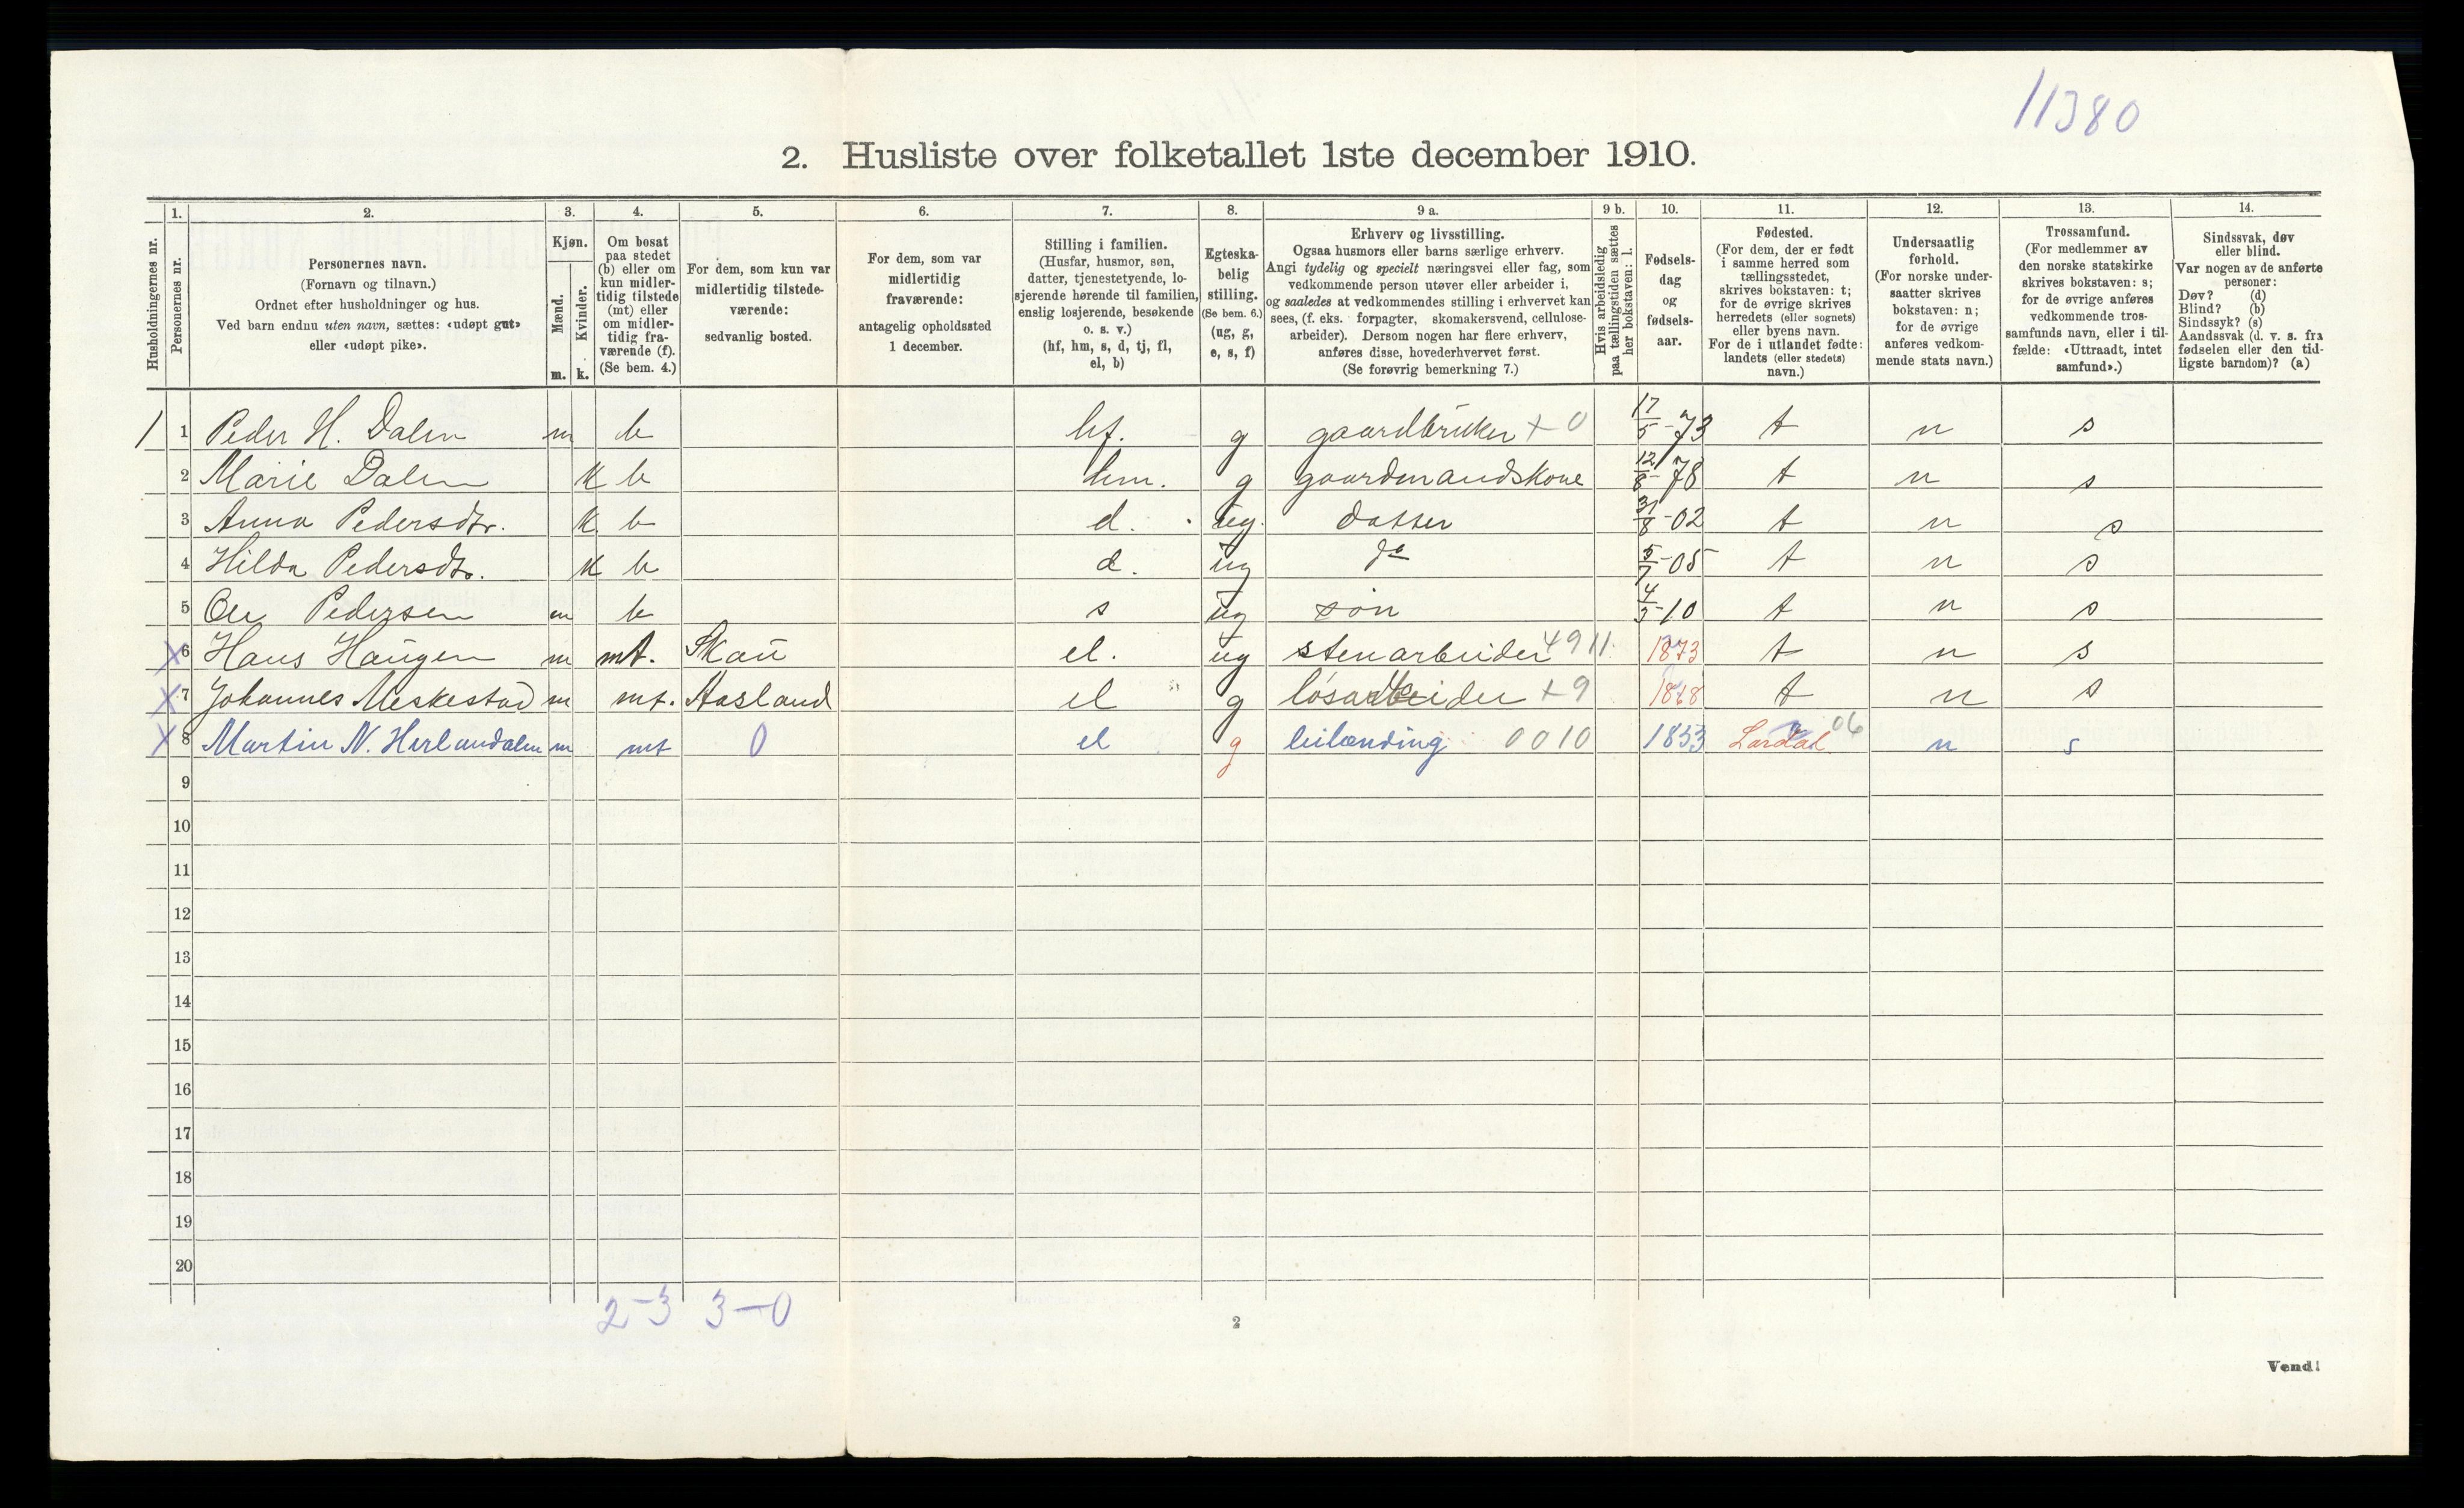 11380
2. Husliste over folketallet 1ste december 1910.
Husholdningernes nr.
1.
Personernes nr.
2.
Personernes navn.
(Fornavn og tilnavn.)
Ordnet efter husholdninger og hus.
Ved barn endnu uten navn, sættes: «udøpt gut»
eller «udøpt pike».
3.
Kjøn.
Mænd.
Kvinder.
m. k.
4.
Om bosat
paa stedet
(b) eller om
kun midler-
tidig tilstede
(mt) eller
om midler-
tidig fra-
værende (f).
(Se bem. 4.)
5.
For dem, som kun var
midlertidig tilstede-
værende:
sedvanlig bosted.
6.
For dem, som var
midlertidig
fraværende:
antagelig opholdssted
1 december.
7.
Stilling i familien.
(Husfar, husmor, søn,
datter, tjenestetyende, lo-
sjerende hørende til familien,
enslig losjerende, besøkende
o. s. v.)
(hf, hm, s, d, tj, fl,
el, b)
8.
Egteska-
belig
stilling.
(Se bem. 6.)
(ug, g,
e, s, f)
9 a.
Erhverv og livsstilling.
Ogsaa husmors eller barns særlige erhverv.
Angi tydelig og specielt næringsvei eller fag, som
vedkommende person utøver eller arbeider i,
og saaledes at vedkommendes stilling i erhvervet kan
sees, (f. eks. forpagter, skomakersvend, cellulose-
arbeider). Dersom nogen har flere erhverv,
anføres disse, hovederhvervet først.
(Se forøvrig bemerkning 7.)
9 b.
Hvis arbeidsledig
paa tællingstiden sættes
her bokstaven: l.
10.
Fødsels-
dag
og
fødsels-
aar.
11.
Fødested.
(For dem, der er født
i samme herred som
tællingsstedet,
skrives bokstaven: t;
for de øvrige skrives
herredets (eller sognets)
eller byens navn.
For de i utlandet fødte:
landets (eller stedets)
navn.)
12.
Undersaatlig
forhold.
(For norske under-
saatter skrives
bokstaven: n;
for de øvrige
anføres vedkom-
mende stats navn.)
13.
Trossamfund.
(For medlemmer av
den norske statskirke
skrives bokstaven: s;
for de øvrige anføres
vedkommende tros-
samfunds navn, eller i til-
fælde: «Uttraadt, intet
samfund».)
14.
Sindssvak, døv
eller blind.
Var nogen av de anførte
personer:
Døv? (d)
Blind? (b)
Sindssyk? (s)
Aandssvak (d. v. s. fra
fødselen eller den tid-
ligste barndom)? (a)
1 1 Peder H. Dalen m b hf. g gaardbruker + 0 17/5-73 t n s
2 Marie Dalen k b hm. g gaardmandskone 12/8-78 t n s
3 Anna Pedersdtr. k b d. ug. datter 31/8-02 t n s
4 Hilda Pedersdtr. k b d. ug do 5/7-05 t n s
5 Ole Pedersen m b s ug søn 4/3-10 t n s
X 6 Hans Haugen m mt. Skau el. ug stenarbeider 4911 1873 t n s
X 7 Johannes Meskestad m mt. Aasland el g løsarbeider + 9 1868 t n s
X 8 Martin N. Herlandalen m mt 0 el g leilænding 0010 1853 Lardal 06 n s
9
10
11
12
13
14
15
16
17
18
19
20
2-3 3-0
2
Vend!